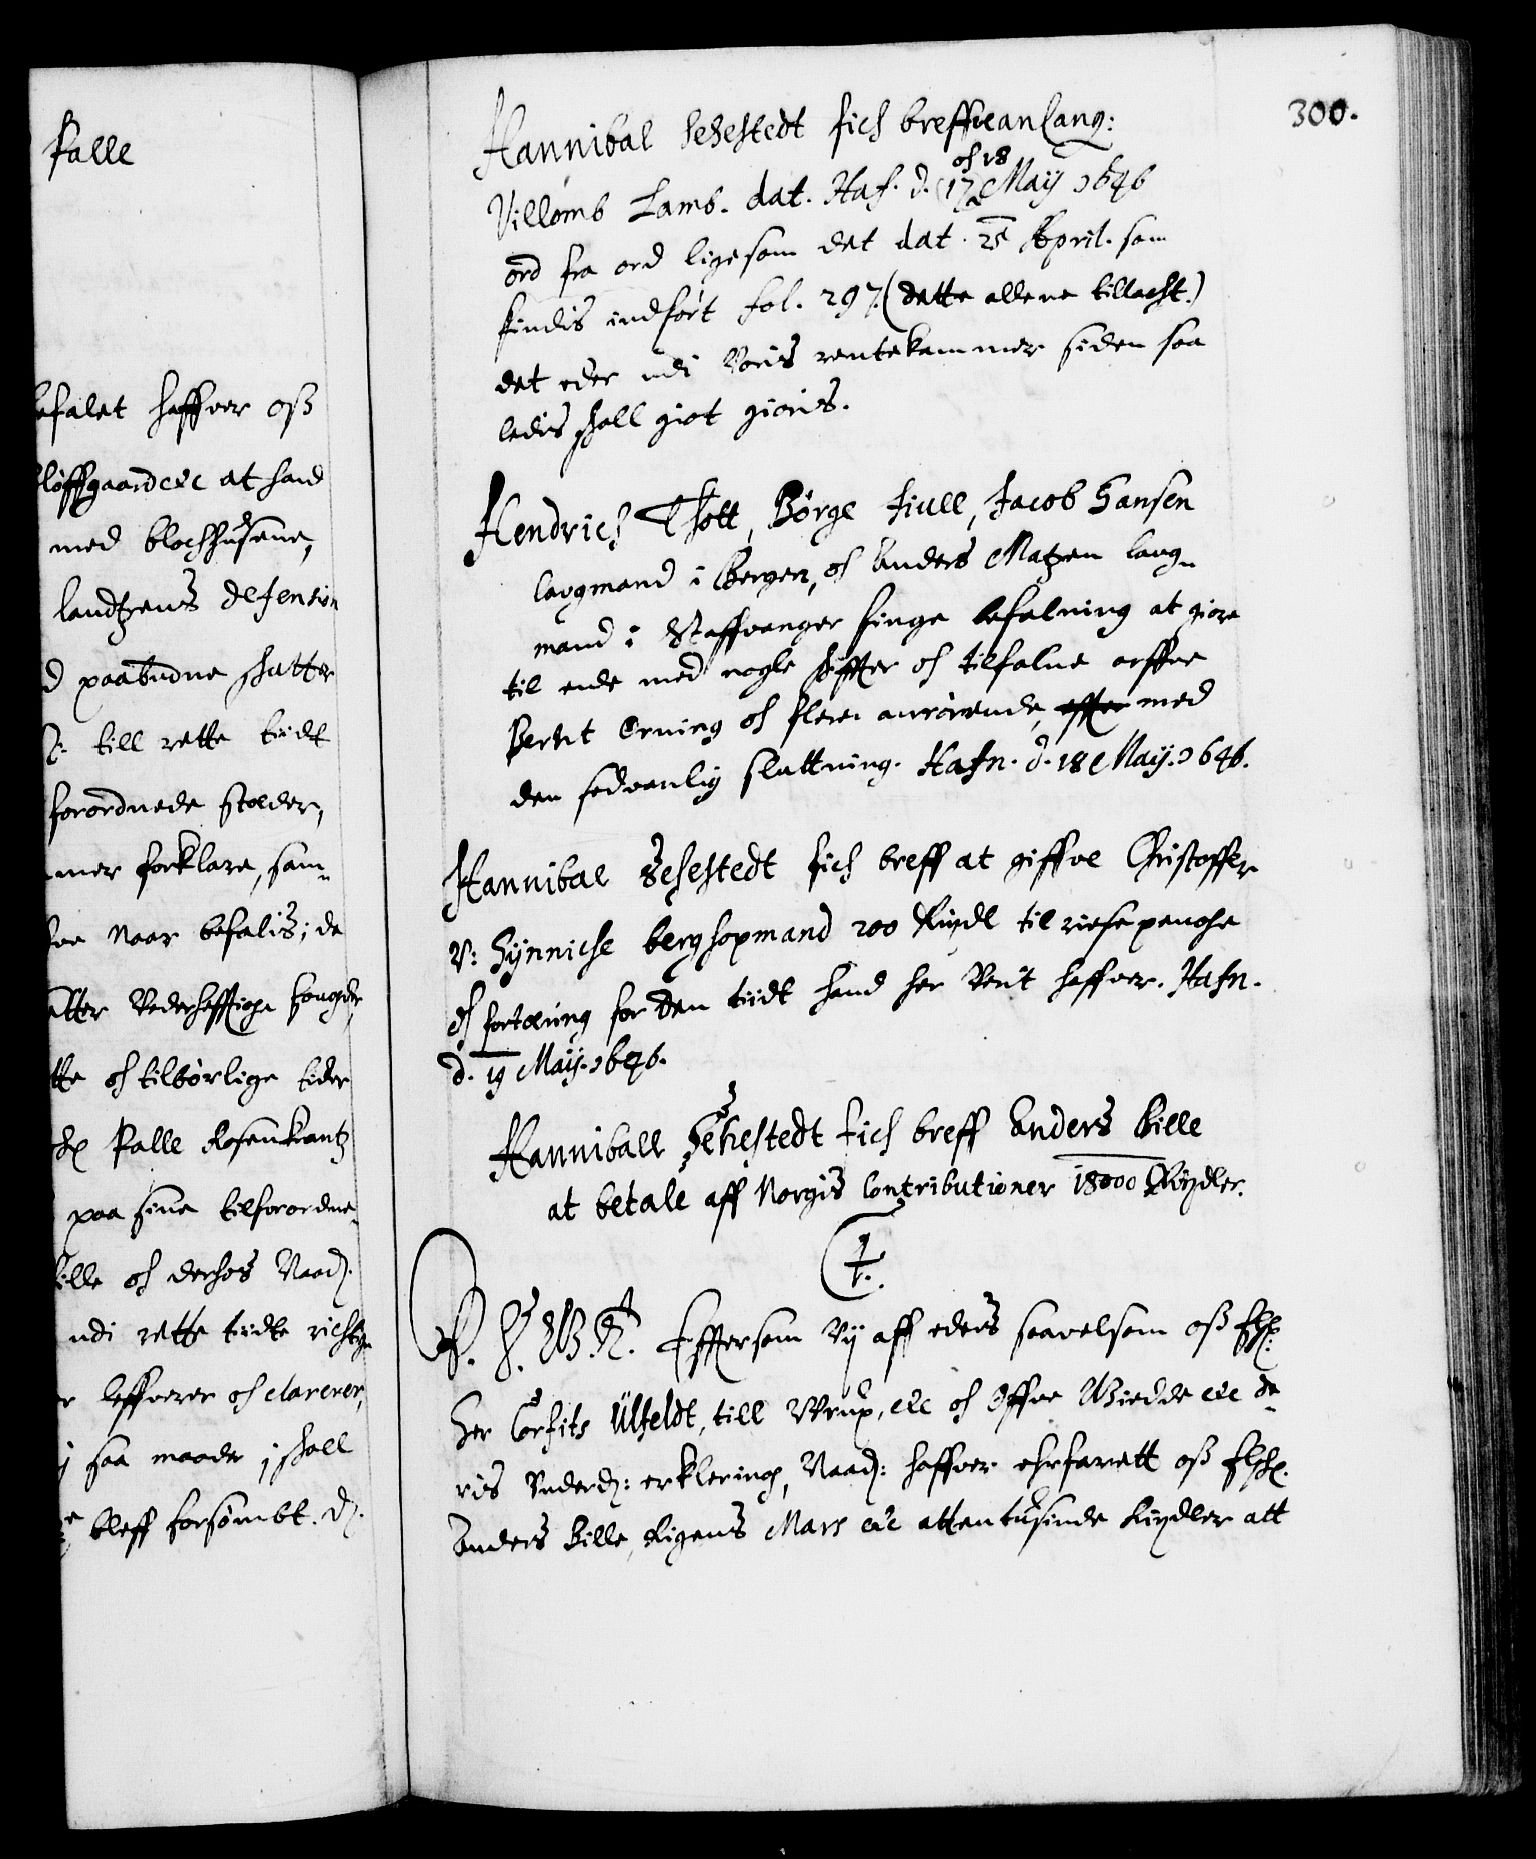 Palle
befalet haffver oß
sløffgaard etc at hand
med blochhusene,
landtzens defension
d paabudne skatter
till rette tidt
forordnede steder,
mer forklare, sam-
naar befalis; da
atter Vederhefftige fougder
tte och tilbørlige tider
Palle Rosenkrantz
paa sine tilforordne-
ville och derhos Naad:
udi rette tidt richtig
r leffverer och clarerer,
j saa maade j skall
bleff forsømbt. D.
300.
Hannibal Sehestedt fich breff anlang:
Villomb Lamb. dat. Haf. d. 17 och 18 Maij 1646
ord fra ord ligesom det dat. 25 April. som
findis indført fol. 297. (dette allene tillacht.)
det eder udi Voris rentekammer siden saa
ledis skall giot giøris.
Hendrich Thott, Børge Juell, Jacob Hansen
laugmand i Bergen, och Anders Matzen laug-
mand i Staffvanger finge befalning at giøre
til ende med nogle skiffter och tilfalne arffve
Berent Orning och flere anrørende, effter med
den sedvanlig sluttning. Hafn. d. 18 Maij. 1646.
Hannibal Sehestedt fich breff at giffve Christoffer
V: Hynniche berghopmand 200 Rixdl til reisepenge
och fortæring for den tiidt hand her verit haffver. Hafn.
d. 19 Maij. 1646.
Hanniball Sehestedt fich breff Anders Bille
at betale aff Norgis Contributioner 18000 Rixdler.
C. 4.
V. S. G. T. Effthersom Vij aff eders saavelsom oß Elsk:
Her Corfits Ulfeldt, till Vrup, etc och Offve Giedde etc de-
ris Underd: erklering, Naad: haffver erfarett oß Elsk:
Anders Bille, Rigens Mars etc attentusinde Rixdler att